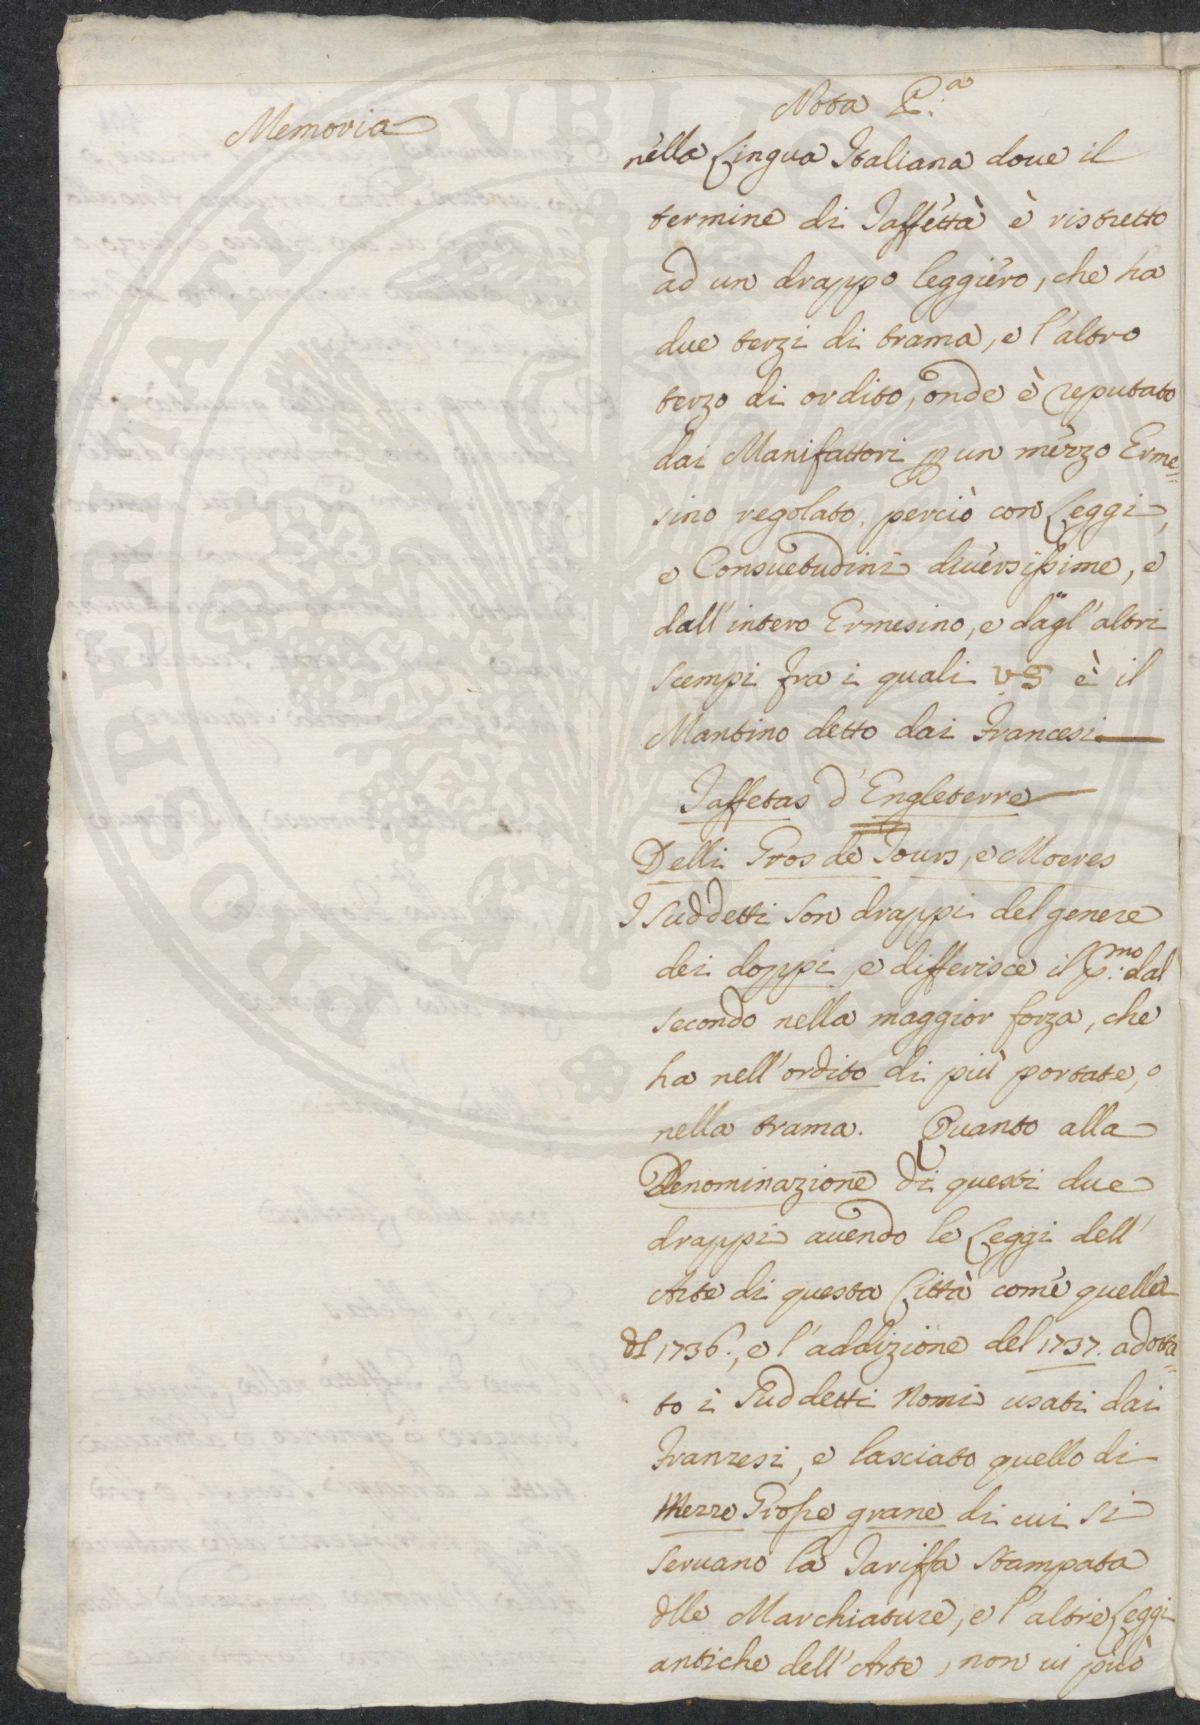 Memoria
Nota P.a
nella Lingua Italiana doue il
termine di Taffettà è ristretto
ad un drappo leggiero, che ha
due terzi di trama, e l'altro
terzo di ordito, onde è reputato
dai Manifattori p un mezzo Erme=
sino regolato, perciò con Leggi,
e Consuetudini diuersissime, e
dall'intero Ermesino, e dagl'altri
scempi fra i quali v'è il
Mantino detto dai Francesi
Taffetas d'Engleterre
Delli Gros de Tours, e Moeres
I Suddetti son drappi del genere
dei doppi, e differisce il P.mo dal
secondo nella maggior forza, che
ha nell'ordito di più portate, o
nella trama. Quanto alla
Denominazione di questi due
drappi auendo le Leggi dell'
Arte di questa Città come quella
dl 1736., e l'addizione del 1737. adotta=
to i Suddetti Nomi usati dai
Franzesi, e lasciato quello di
Mezze Grosse grane di cui si
seruano la Tariffa stampata
dlle Marchiature, e l'altre Leggi
antiche dell'Arte, non ui può